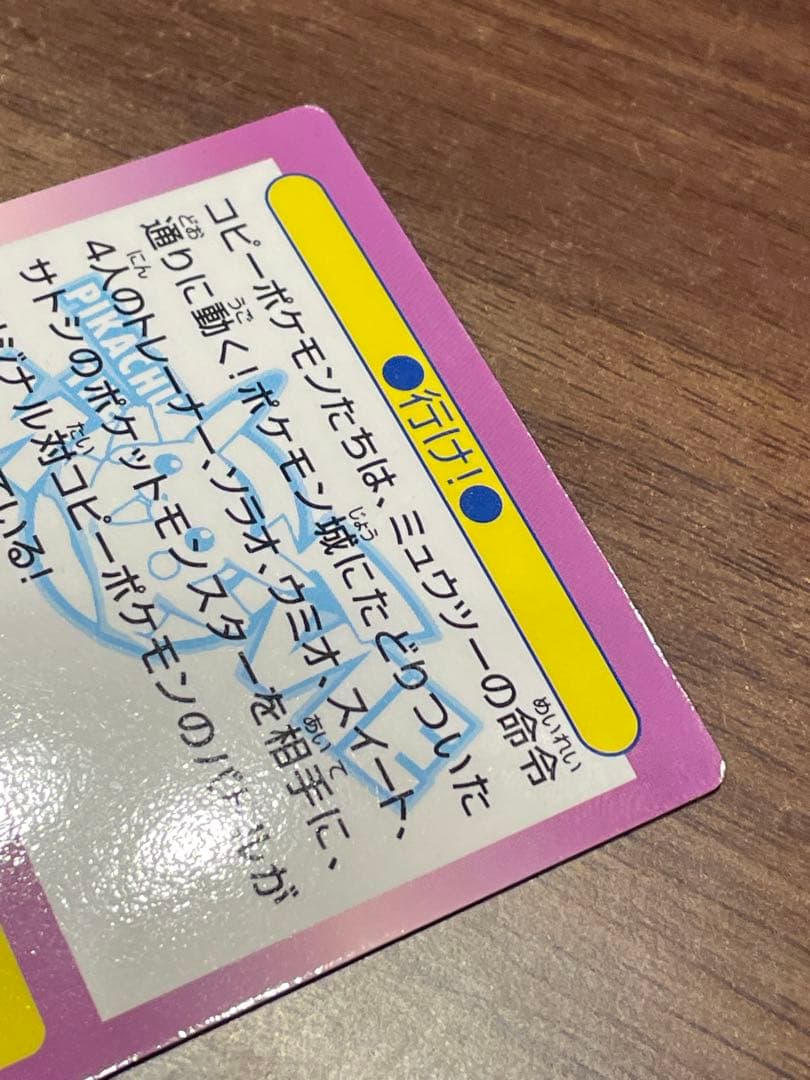 ●行け!●
コピーポケモンたちは、ミュウツーの命令
通りに動く!ポケモン城にたどりついた
4人のトレーナー、ソラオ、ウミオ、スイート、
サトシのポケットモンスターを相手に、
ジナル対コピーポケモンのバトルが
ている!
PIKACHU